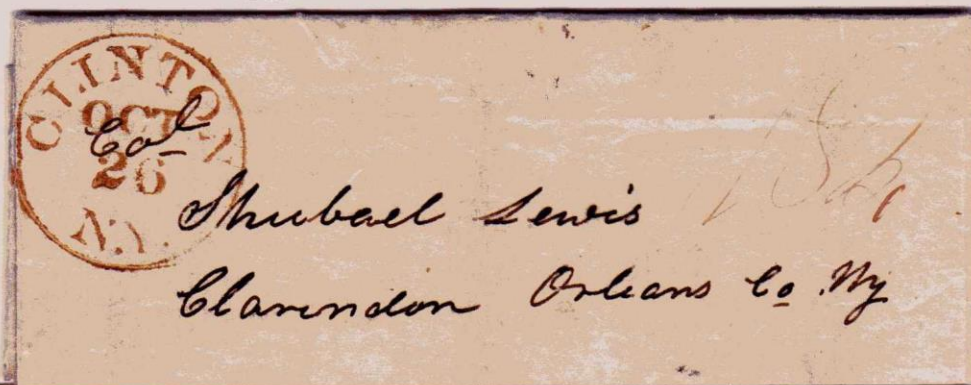 CLINTON
OCT
26
N.Y.
Col
Shubael Lewis
Clarendon Orleans Co Ny